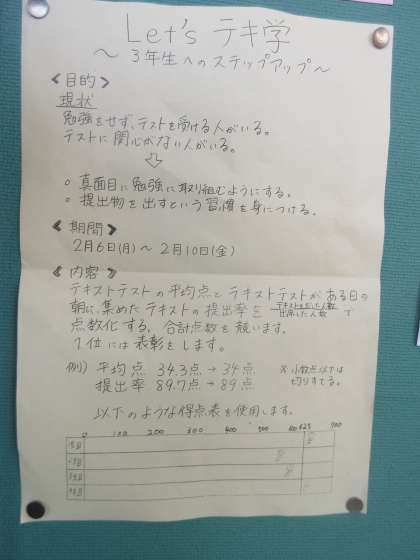 Let's テキ学
～3年生へのステップアップ～
《目的》
現状
勉強をせず、テストを受ける人がいる。
テストに関心がない人がいる。
⇩
○ 真面目に勉強に取り組むようにする。
○ 提出物を出すという習慣を身につける。
《期間》
2月6日(月)～2月10日(金)
《内容》
テキストテストの平均点とテキストテストがある日の
朝に、集めたテキストの提出率を テキストをだした人数/出席した人数 で
点数化する。合計点数を競います。
1位には表彰をします。
例) 平均点 34.3点→34点 ※小数点以下は
提出率 89.7点→89点 切りすてる。
以下のような得点表を使用します。
0 100 200 300 400 500 600 625 700